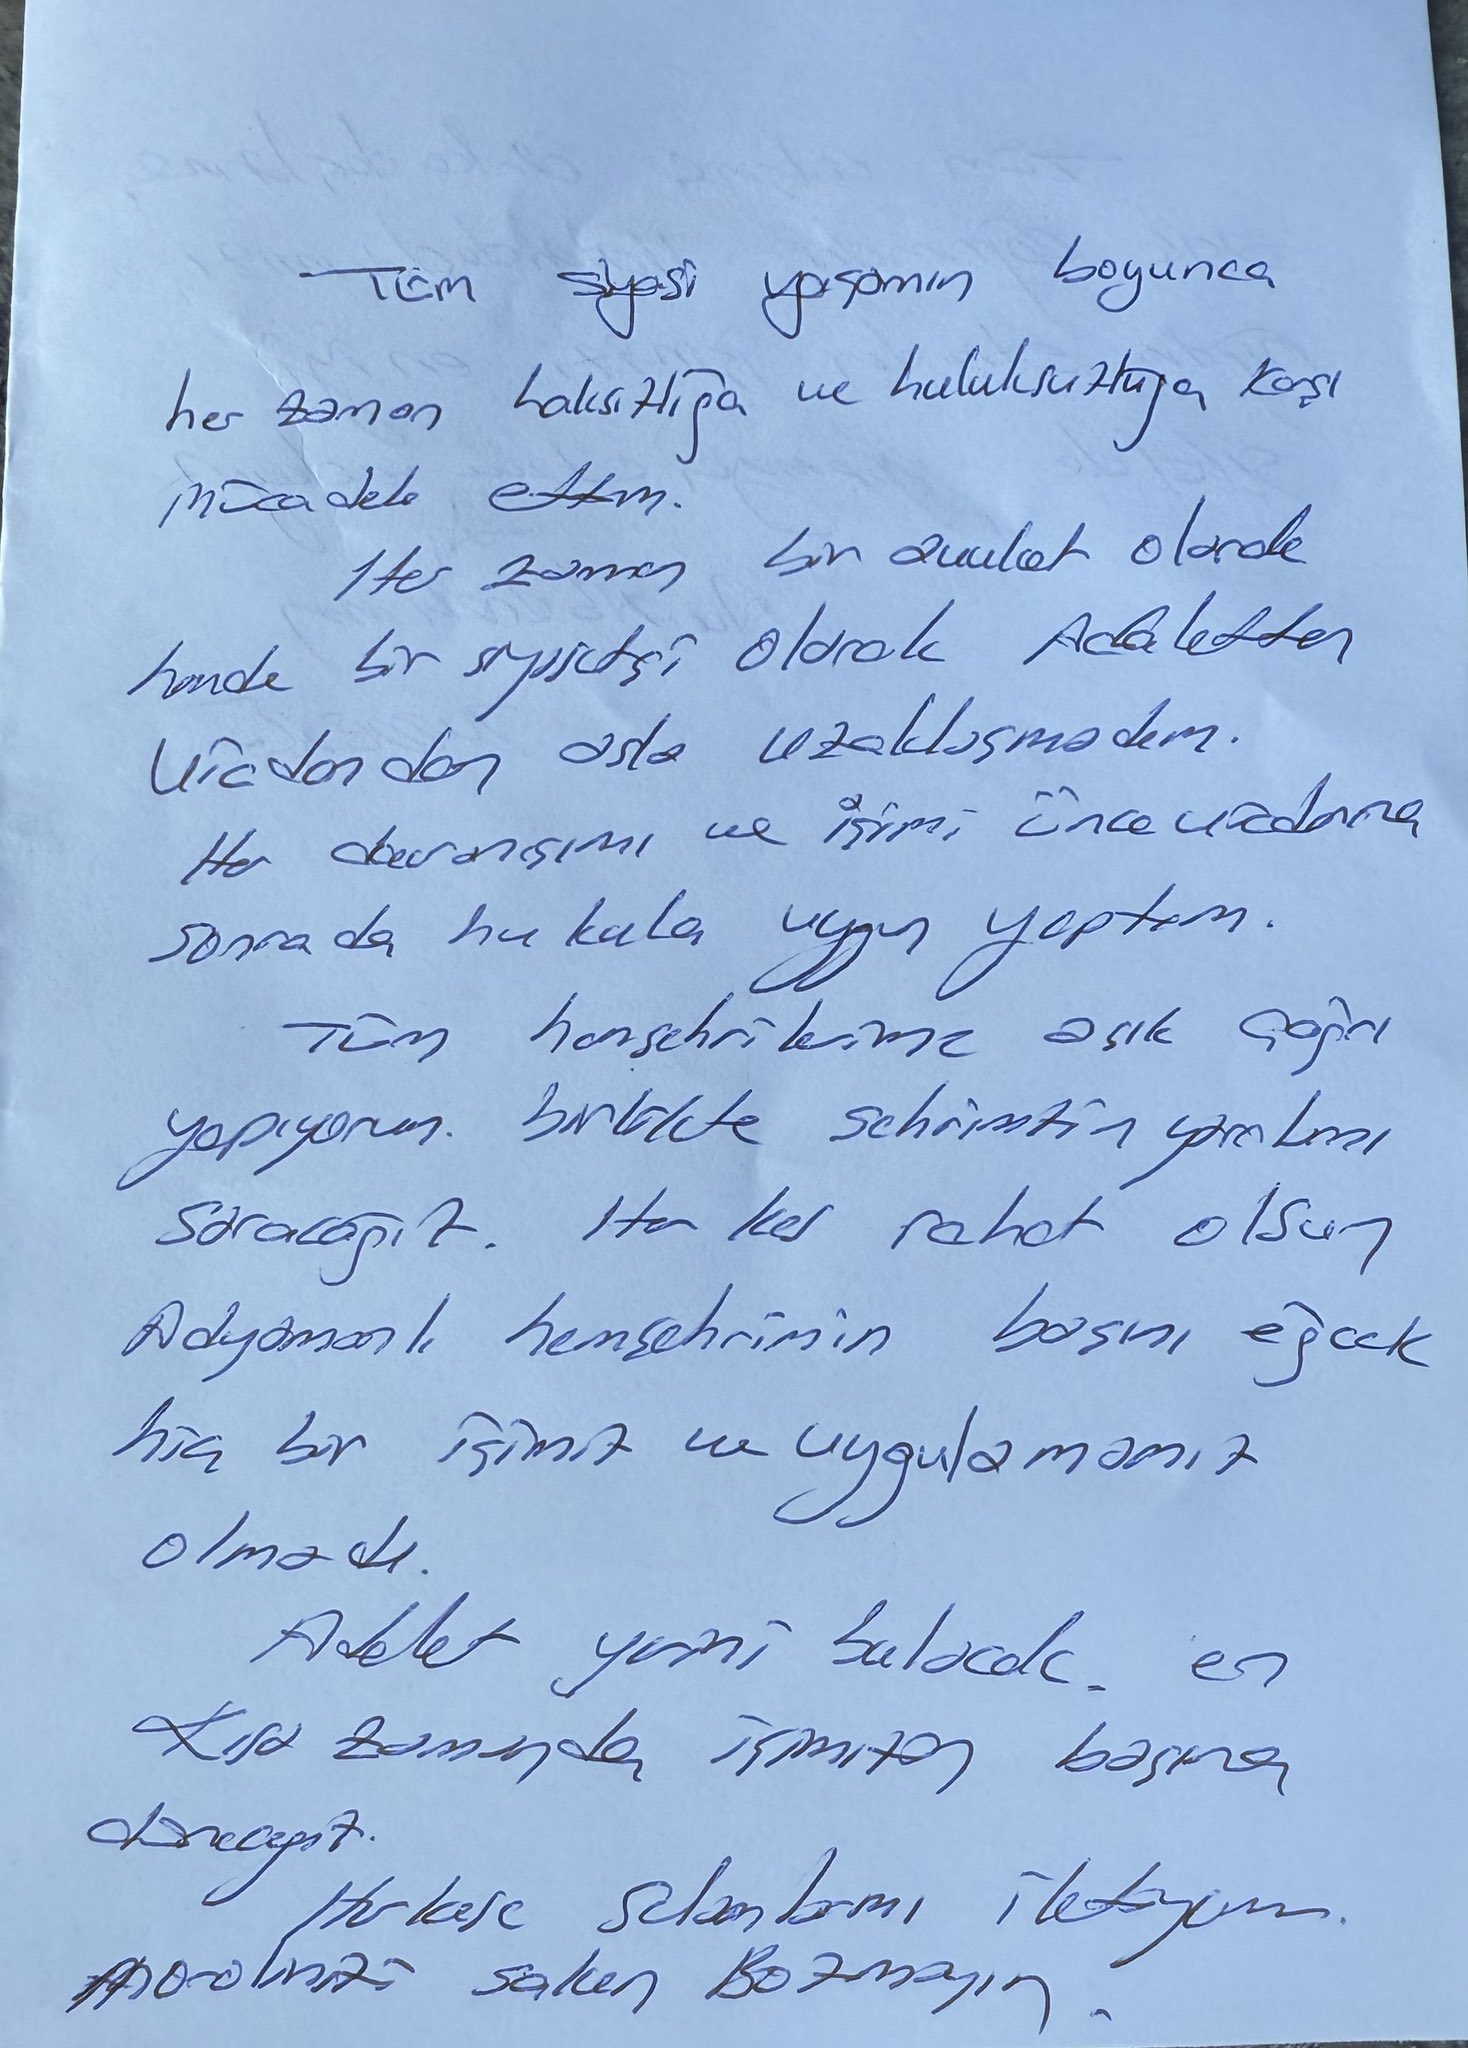 Tüm siyasi yaşamım boyunca
her zaman haksızlığa ve hukuksuzluğa karşı
mücadele ettim.
Her zaman bir avukat olarak
hemde bir siyasetçi olarak Adaletten
Vicdandan asla uzaklaşmadım.
Her davranışımı ve işimi önce vicdanıma
sonrada hukuka uygun yaptım.
Tüm hemşehrilerime açık çağrı
yapıyorum. birlikte şehrimizin yaralarını
saracağız. Her kes rahat olsun
Adıyamanlı hemşehrimin başını eğecek
hiç bir işimiz ve uygulamamız
olmadı.
Adalet yerini bulacak. en
Kısa zamanda işimizin başına
döneceğiz.
Herkese selamlarımı iletiyorum.
moralinizi sakın Bozmayın.